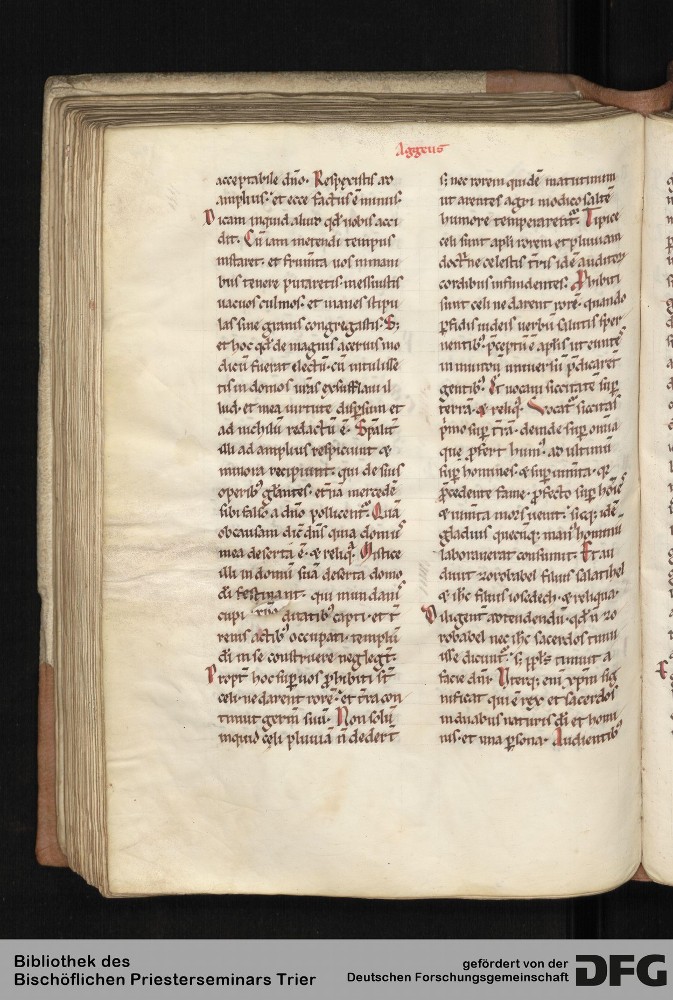 Aggeus
acceptabile dño. Respexistis ad
amplius. et ecce factus ē minus.
Dicam inquid aliud qđ uobis acci
dit. Cū iam metendi tempus
instaret. et frumta uos in mani
bus tenere putaretis. messuistis
uacuos culmos. et inanes stipu
las sine granis congregastis. S;
et hoc qđ de magnis aceruis mo
dicū fuerat electū. cū intulisse
tis in domos ur̄as exsufflaui il
lud. et mea uirtute dispersum et
ad nichilū redactū ē. Sp̄alit̄
illi ad amplius respiciunt &
minora recipiunt. qui de suis
operib; gl̄antes. et̄na mercedē
sibi falso a dño pollicent̄.
ob causam dic̄ dñs quia domus
mea deserta ē. & reliq̄. Mistice
illi in domū suā deserta domo
dī festinant. qui mundanis
actib; occupati. templū
dī in se construere neglegt̄.
Propt̄ hoc sup̄ uos p̄hibiti st̄
celi. ne darent rorē. et t̄ra con
tinuit germ̄ suū. Non solū
inquid cęli pluuiā n̄ dedert̄
s; nec rorem quidē matutinum
ut arentes agri modico saltē
humore temperarent̄. Tipice
celi sunt apl̄i rorem et pluuiam
doctr̄ne celestis t̄ris idē auditor̄
cordibus infundentes. Phibiti
sunt celi ne darent rorē. quando
p̄fidis iudeis uerbū salutis sper
nentib; p̄ceptū ē apl̄is ut euntes
in mundū uniuersū p̄dicarent̄
gentib;. Et uocaui siccitatē sup̄
terrā. & reliq̄. Vocat̄ siccitas
p̄mo sup̄ t̄rā. deinde sup̄ omīa
que p̄fert hum;. ad ultimū
sup̄ homines. & sup̄ iumta. q̄
p̄cedente fame. p̄fecto sup̄ hoīes
& iumta mors uenit. sicq; idē
gladius quecūq; man; hominū
laborauerat consumit. Et au
diuit zorobabel filius salatihel
& ih̄c filius iosedech. & reliqua.
Diligent̄ adtendendū. qđ n̄ zo
robabel nec ih̄c sacerdos timu
isse dicunt̄. s; pp̄ls timuit a
facie dn̄i. Vterq; enī xp̄m sig
nificat qui ē rex et sacerdos
in duabus naturis dī et homi
nis. et una p̄sona. Audientib;
Bibliothek des
Bischöflichen Priesterseminars Trier
gefördert von der
Deutschen Forschungsgemeinschaft
DFG